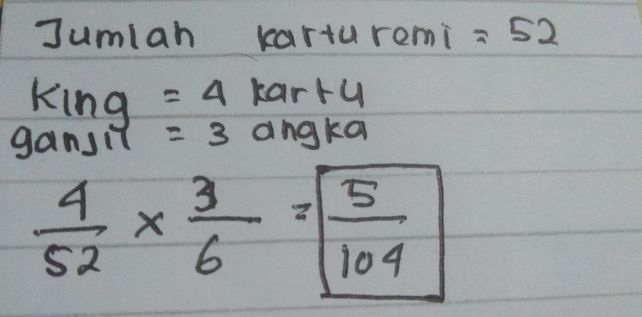 Jumlah kartu remi = 52
King = 4 kartu
ganjil = 3 angka
4/52 × 3/6 = 5/104